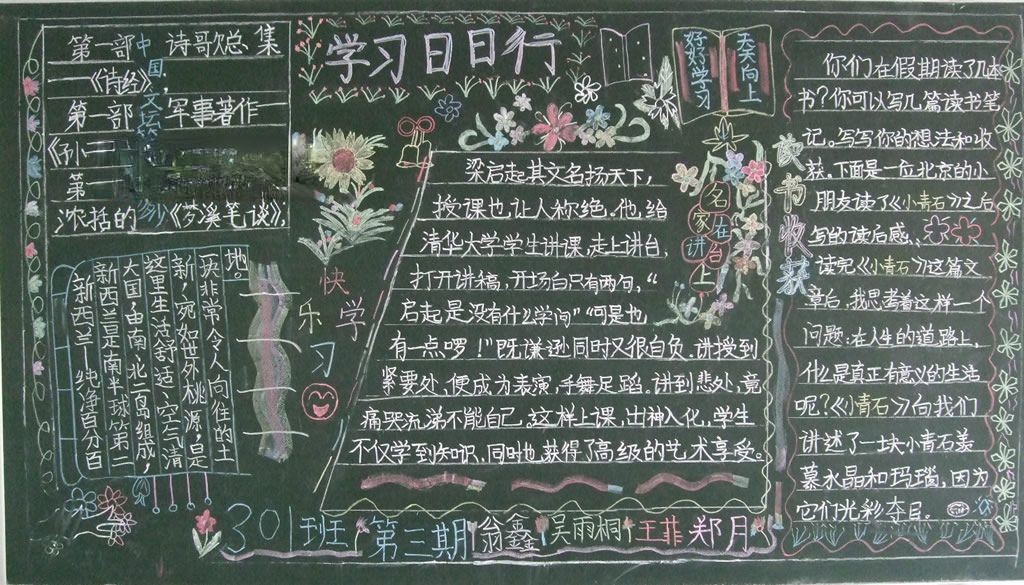 学习日日行
好好学习
天天向上
第一部 诗歌总集
——《诗经》
第一部 军事著作—
《孙
第一
沈括的《梦溪笔谈》,
中国
新西兰—纯净百分百
新西兰是南半球第二
大国,由南、北二岛组成,
这里生活舒适、空气清
新,宛如世外桃源,是
一块非常令人向往的土
地
快
乐学
习
名家在讲台上
梁启超其文名扬天下,
授课也让人称绝。他给
清华大学学生讲课,走上讲台,
打开讲稿,开场白只有两句,“
启超是没有什么学问”“可是也
有一点啰!”既谦逊同时又很自负,讲授到
紧要处,便成为表演,手舞足蹈。讲到悲处,竟
痛哭流涕不能自己。这样上课,出神入化,学生
不仅学到知识,同时也获得了高级的艺术享受。
读书收获
你们在假期读了几本
书?你可以写几篇读书笔
记。写写你的想法和收
获。下面是一位北京的小
朋友读了《小青石》之后
写的读后感。
读完《小青石》这篇文
章后,我思考着这样一个
问题:在人生的道路上,
什么是真正有意义的生活
呢?《小青石》向我们
讲述了一块小青石羡
慕水晶和玛瑙,因为
它们光彩夺目。
301班 第三期 翁鑫 吴雨桐 王菲 郑月